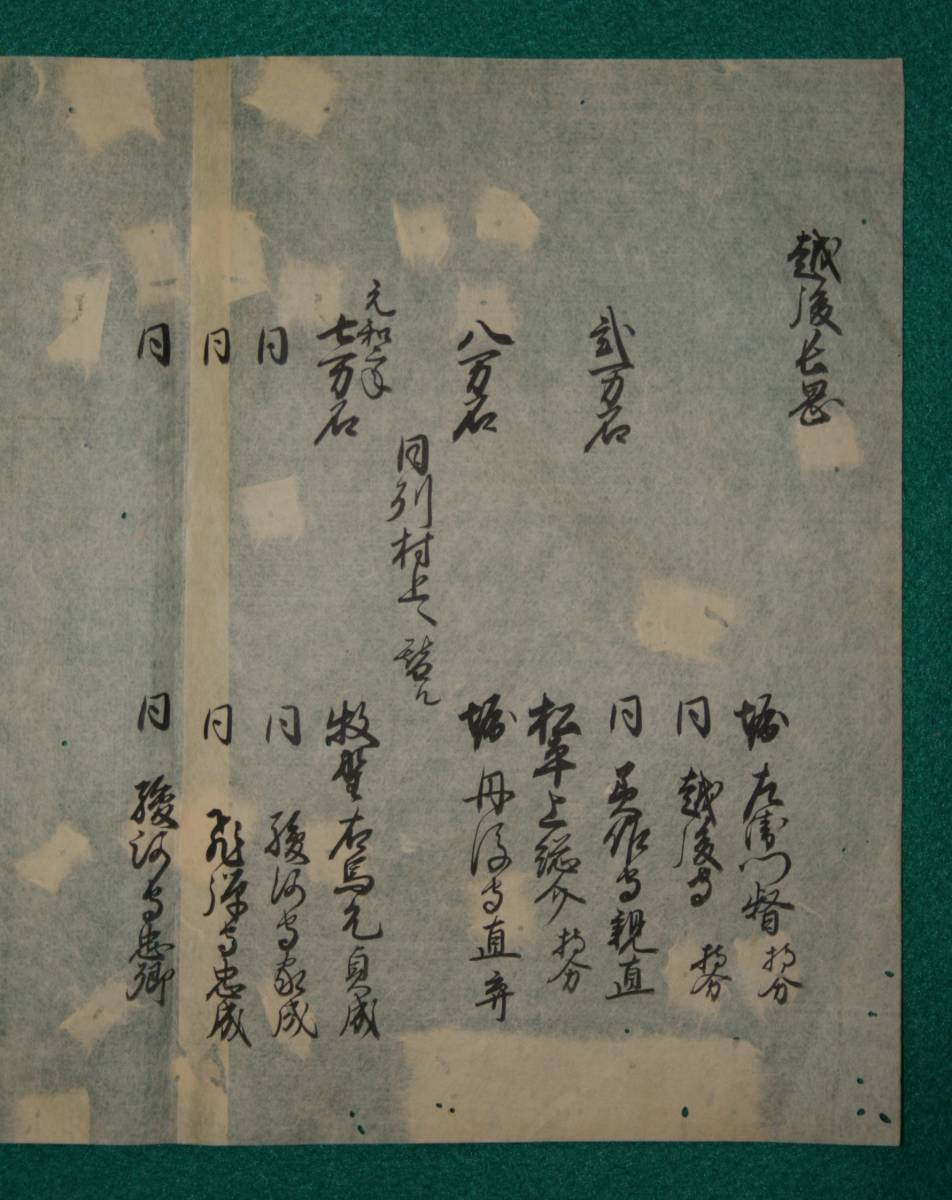 越後長岡
堀 左衛門督 持分
同 越後守 持分
弐万石 同 美作守親直
松平上総介 持分
八万石 堀 丹後守直寄
同列村上へ替ル
元和二年
七万石 牧野右馬允貞成
同 同 駿河守家成
同 同 飛弾守忠成
同 同 駿河守忠郷